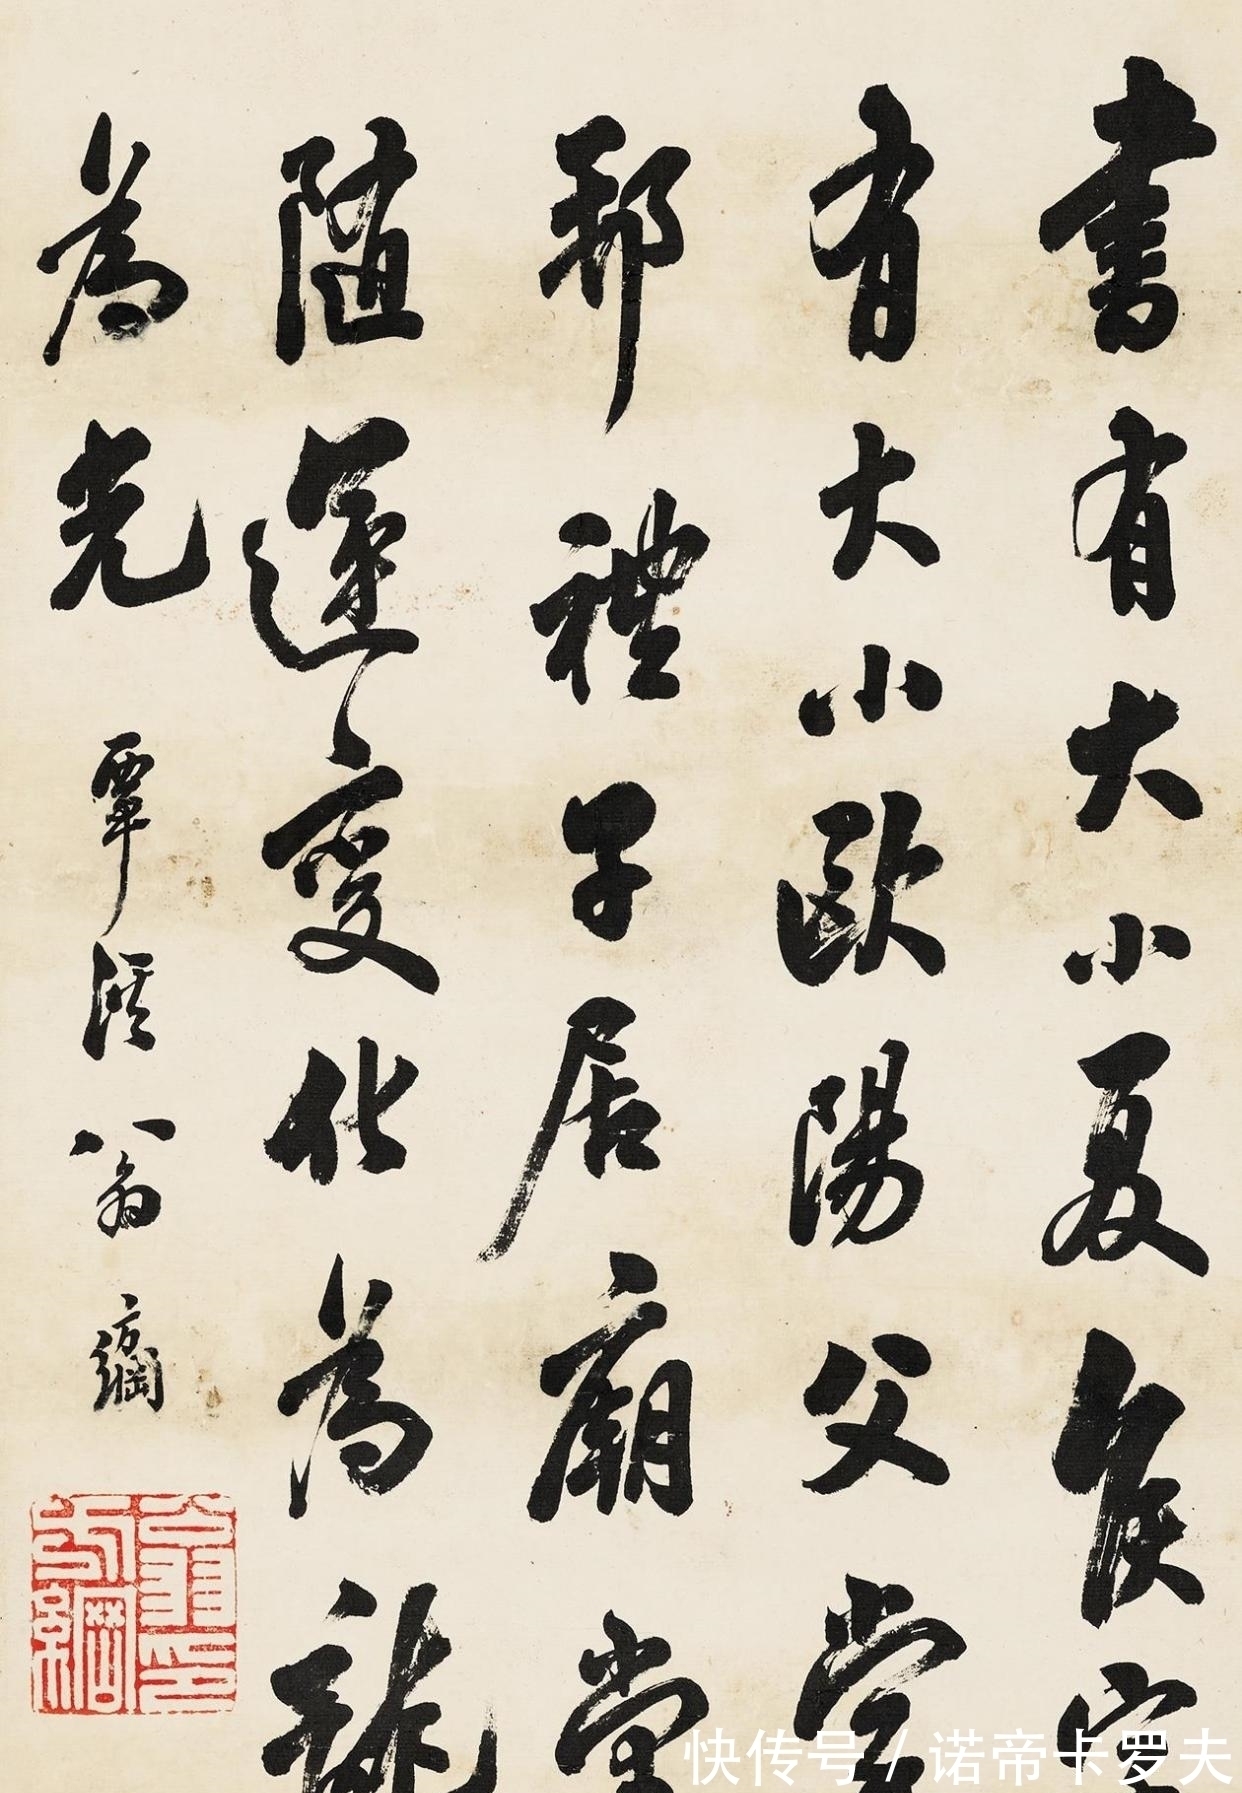 書有大小夏侯字
有大小歐陽父嘗
邪禮子居廟堂
隨運變化為龍
為光
覃溪翁方綱
翁方綱印
快传号/诺帝卡罗夫